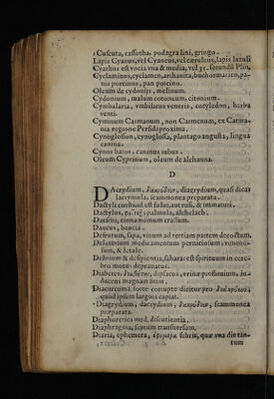 Cuscuta, cassutha, podagra lini, gringo.
Lapis Cyanus, vel Cyaneus, vel cæruleus, lapis lazuli
Cyathus est vocis una & media, vel
Cyclaminos, cyclamen, arthanita, buchormarien, pa-
nis porcinus, pan porcino.
Oleum de cydoniis, melinum.
Cydonium, malum cotoneum, citonium.
Cymbalaria, vmbilicus veneris, cotyledon, herba
venti.
Cyminum Carmanum, non Carmenum, ex Carma-
nia regione Persidi proxima.
Cynoglossum, cynoglossa, plantago angusta, lingua
canina.
Cynos batos, caninus rubus.
Oleum Cyprinum, oleum de alchanna.
D
DAcrydium, δακρύδιον, diacrydium, quasi dicas
lacrymula, scammonea præparata.
Dactyli
Dactylus, palmula,
cinnamomum crassum.
Daucus, baucia.
Defrutum, sapa, vinum ad tertiam partem decoctum.
medicamentum perniciosum, veneno-
sum, & letale.
Delirium & desipientia, est spirituum in cere-
bro motus deprauatus.
Diabetes, vrinæ profluuium, in-
ducens magnam sitim.
Diacurcuma forte corrupte dicitur pro
quod ipsum largius capiat.
Diagrydium, dacrydium, δακρύδιον, scammonea
præparata.
Diaphoretica med. discutientia.
Diaphragma, septum transuersum.
Diaria, ephemera, febris, quæ vna die tan-
tum